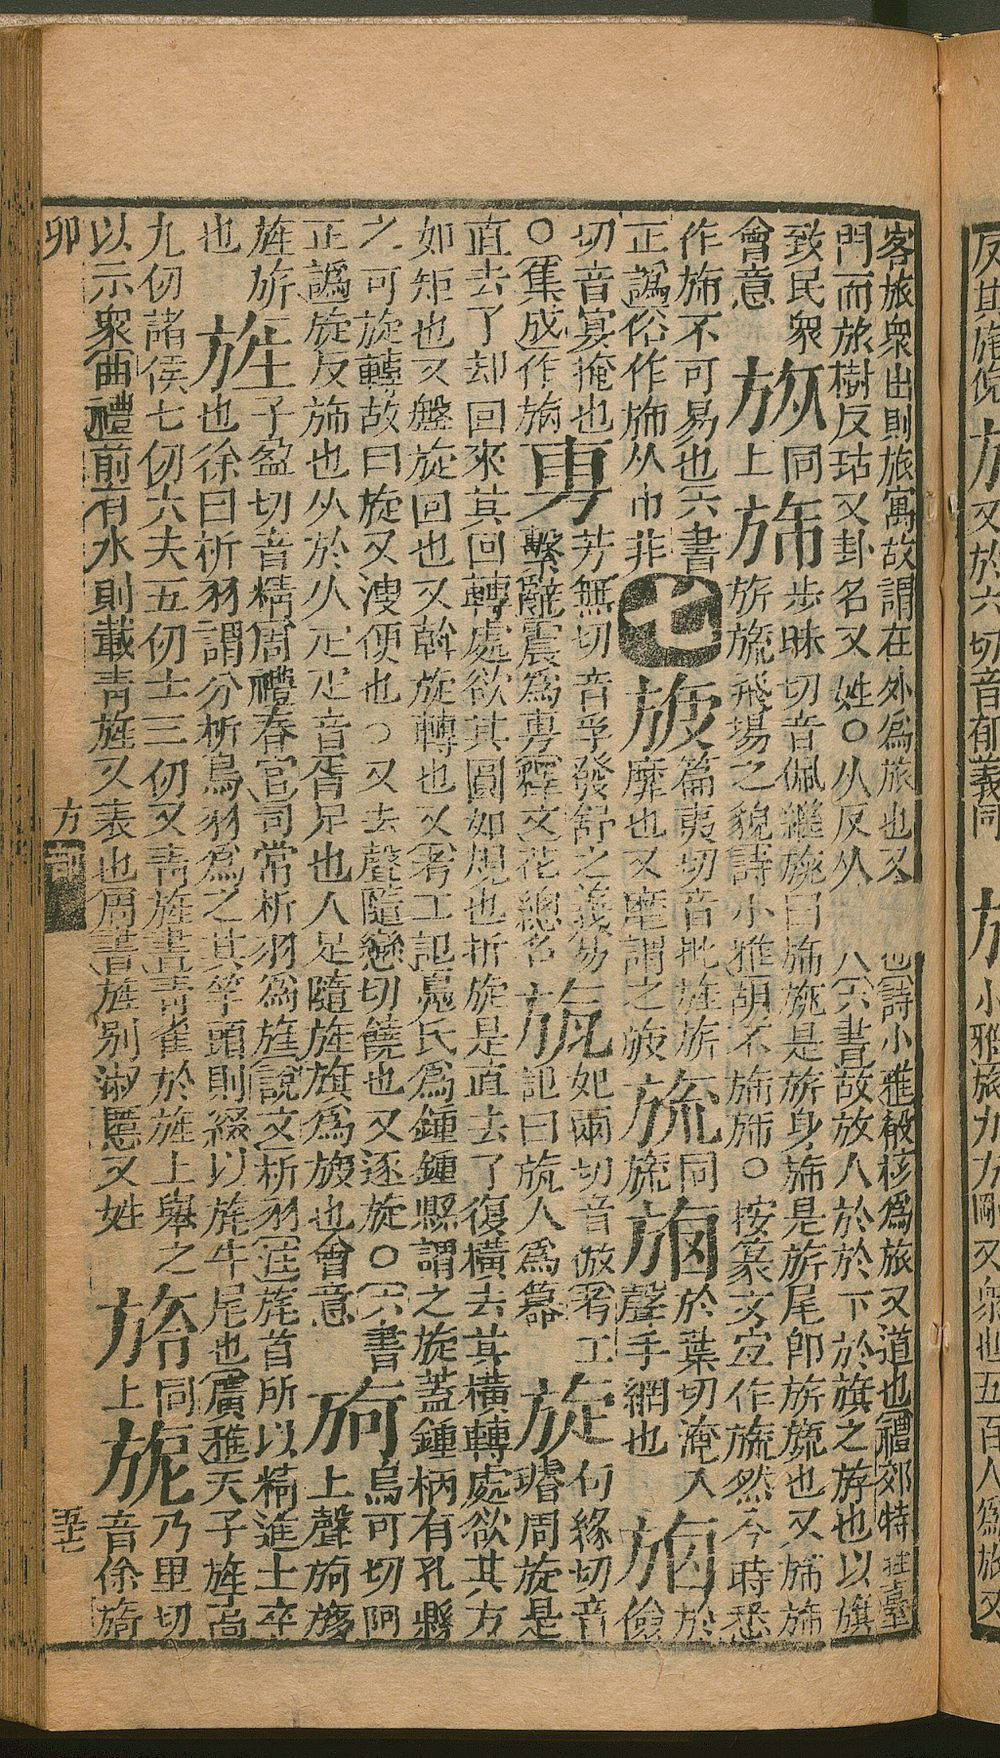 反其旄倪 又於六切音郁義同 小雅旅力方剛又衆也五百人爲旅又
客旅衆出則旅寓故謂在外爲旅也又 也詩小雅殽核爲旅又道也禮郊特牲臺
門而旅樹反坫又卦名又姓〇从㫃从 八六書故㫃人於於下於旗之斿也以旗
致民衆 㫃同 旆步昧切音佩繼旐曰旆旐是旂身旆是旂尾卽旂旒也又旆旆
會意 㫃上 旆旂旒飛揚之貌詩小雅胡不旆旆〇按篆文宜作旆然今時悉
作旆不可易也六書 七 篇夷切音批旌旂 旒同 於葉切淹入 於
正譌俗作斾从巾非 旇靡也又麾謂之旇 旒 聲手網也 儉
切音冥掩也 旉芳無切音孚發舒之義易 㼚妃兩切音倣考工 旋旬緣切音
〇集成作 旉繫辭震爲旉釋文花總名 瓬記曰瓬人爲簋 旋璿周旋是
直去了却回來其回轉處欲其圓如規也折旋是直去了復橫去其橫轉處欲其方
如矩也又盤旋回也又斡旋轉也又考工記鳧氏爲鍾鍾縣謂之旋蓋鍾柄有孔縣
之可旋轉故曰旋又溲便也〇又去聲隨戀切繞也又逐旋〇六書 烏可切阿
正譌旋反旆也从㫃从疋疋音胥足也人足隨旌旗爲旋也會意 旑上聲旑旎
旌旂 子盈切音精周禮春官司常析羽爲旌說文析羽注旄首所以精進士卒
也 旌也徐曰析羽謂分析鳥羽爲之其竿頭則綴以旄牛尾也廣雅天子旌高
九仞諸侯七仞六夫五仞士三仞又靑旌畫靑雀於旌上舉之 同 乃里切
以示衆曲禮前有水則載靑旌又表也周書旌別淑慝又姓 上 旎音你旖
卯 方部 五十七